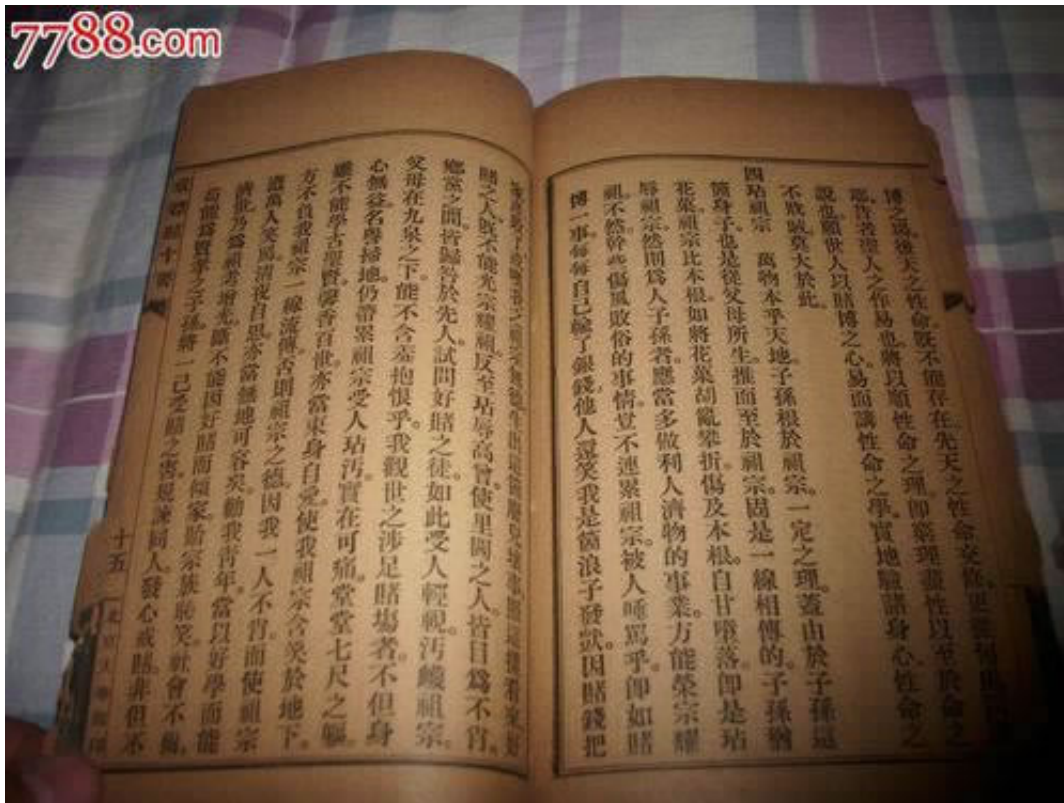 7788.com
博之場後天之性命既不能存在先天之性命
耶昔者聖人之作易也將以順性命之理即窮理盡性以至於命之
說也願世人以賭博之心易而講性命之學實地驗諸身心性命之
不戕賊莫大於此
四玷祖宗 萬物本乎天地子孫根於祖宗一定之理蓋由於子孫這
箇身子也是從父母所生推而至於祖宗固是一線相傳的子孫猶
花菓祖宗比本根如將花菓胡亂攀折傷及本根自甘墮落即是玷
辱祖宗然則爲人子孫者應當多做利人濟物的事業方能榮宗耀
祖不然幹些傷風敗俗的事情豈不連累祖宗被人唾罵乎即如賭
博一事每每自己輸了銀錢他人還笑我是箇浪子發獃因賭錢把
賭之人既不能光宗耀祖反至玷辱高曾使里閭之人皆目爲不肖
鄉黨之間皆歸咎於先人試問好賭之徒如此受人輕視污衊祖宗
父母在九泉之下能不含羞抱恨乎我觀世之涉足賭場者不但身
心無益名譽掃地仍帶累祖宗受人玷污實在可痛堂堂七尺之軀
縱不能學古聖賢馨香百世亦當束身自愛使我祖宗含笑於地下
方不負我祖宗一線流傳否則祖宗之德因我一人不肖而使祖宗
遭萬人笑罵清夜自思亦當無地可容矣勸我靑年當以好學而能
濟世乃爲祖考增光斷不能因好賭而傾家貽宗族恥笑社會不齒
苟能爲賢孝之子孫將一己受賭之害規諫同人發心戒賭非但不
十五